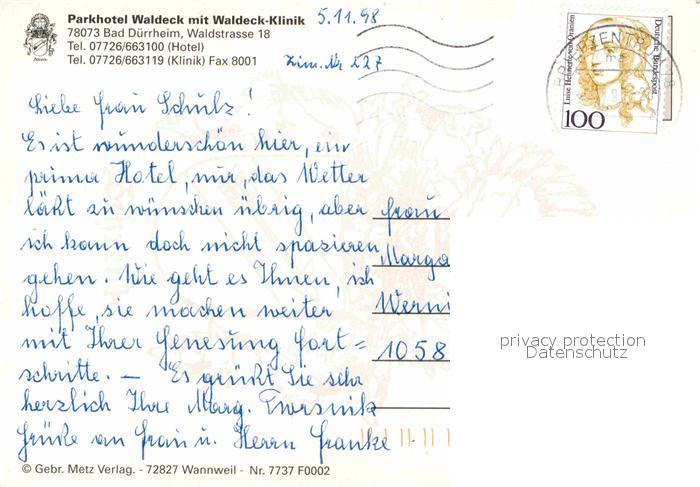 Parkhotel Waldeck mit Waldeck-Klinik
78073 Bad Dürrheim, Waldstrasse 18
Tel. 07726/663100 (Hotel)
Tel. 07726/663119 (Klinik) Fax 8001
5.11.98
Zim. Nr 227
Liebe Frau Schulz!
Es ist wunderschön hier, ein
prima Hotel, nur, das Wetter
läßt zu wünschen übrig, aber
ich kann doch nicht spazieren
gehen. Wie geht es Ihnen, ich
hoffe, sie machen weiter
mit Ihrer Genesung Fort=
schritte. — Es grüßt Sie sehr
herzlich Ihre Marg.
Grüße an Frau u. Herrn Franke
Frau
Marga
Werni
1058
Luise Henriette von Oranien
Deutsche Bundespost
100
BRIEFZENTRUM
privacy protection
Datenschutz
© Gebr. Metz Verlag. - 72827 Wannweil - Nr. 7737 F0002